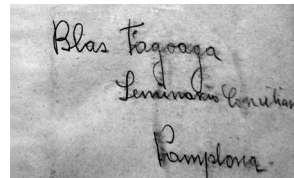 Blas Fagoaga
Seminario Conciliar
Pamplona.